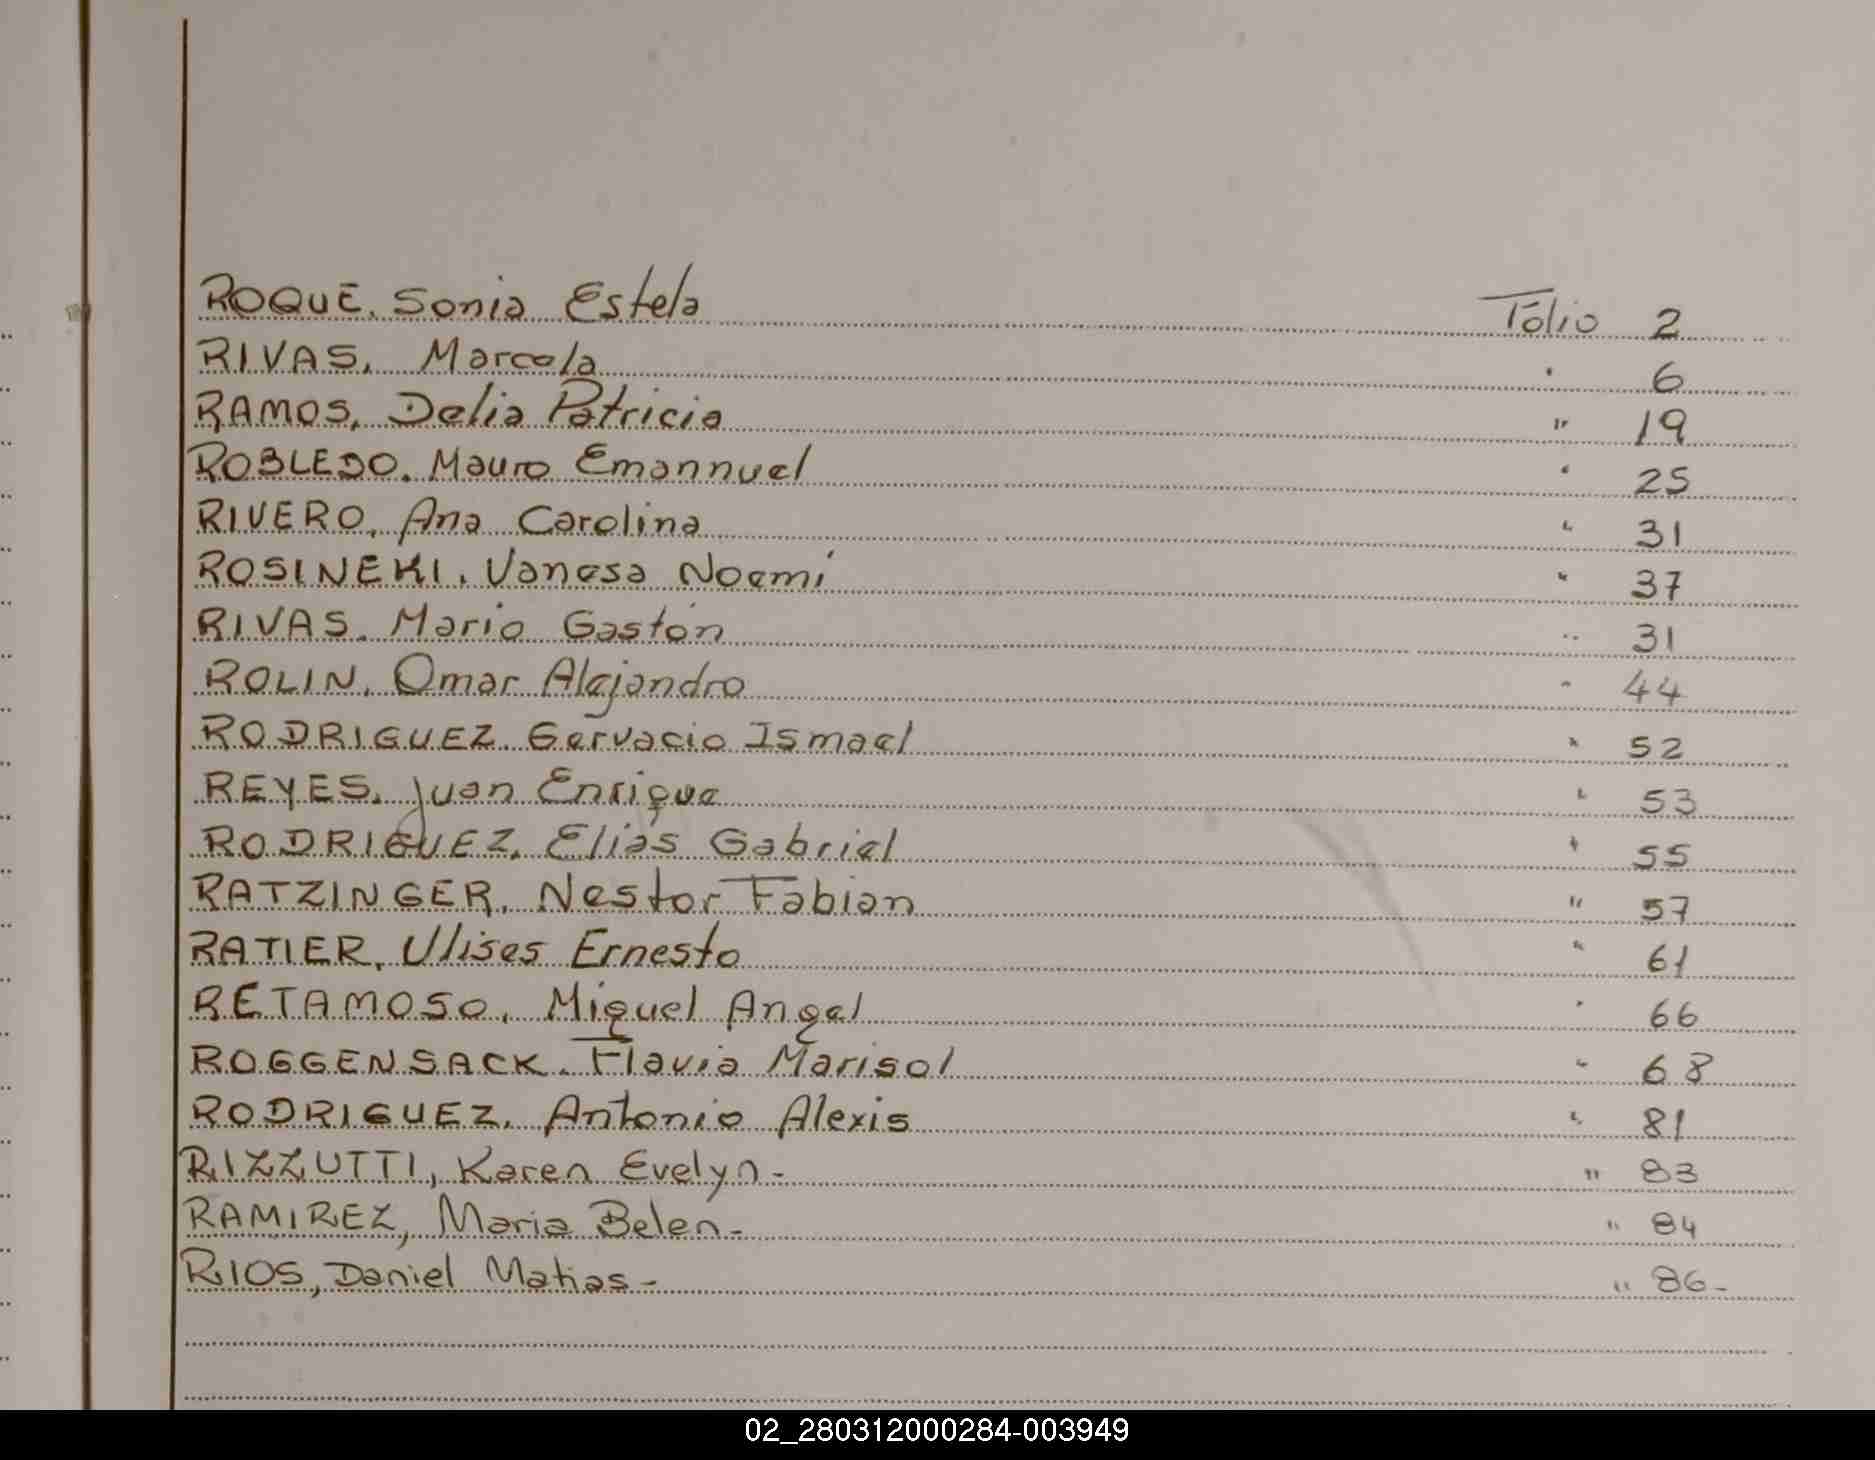 ROQUE, Sonia Estela Folio 2
RIVAS, Marcela " 6
RAMOS, Delia Patricia " 19
ROBLEDO, Mauro Emannuel " 25
RIVERO, Ana Carolina " 31
ROSINEKI, Vanesa Noemí " 37
RIVAS, Mario Gastón " 31
ROLIN, Omar Alejandro " 44
RODRIGUEZ Gervacio Ismael " 52
REYES, Juan Enrique " 53
RODRIGUEZ, Elías Gabriel " 55
RATZINGER, Nestor Fabian " 57
RATIER, Ulises Ernesto " 61
RETAMOSO, Miguel Angel " 66
ROGGENSACK, Flavia Marisol " 68
RODRIGUEZ, Antonio Alexis " 81
RIZZUTTI, Karen Evelyn- " 83
RAMIREZ, Maria Belen- " 84
RIOS, Daniel Matias- " 86-
02_280312000284-003949